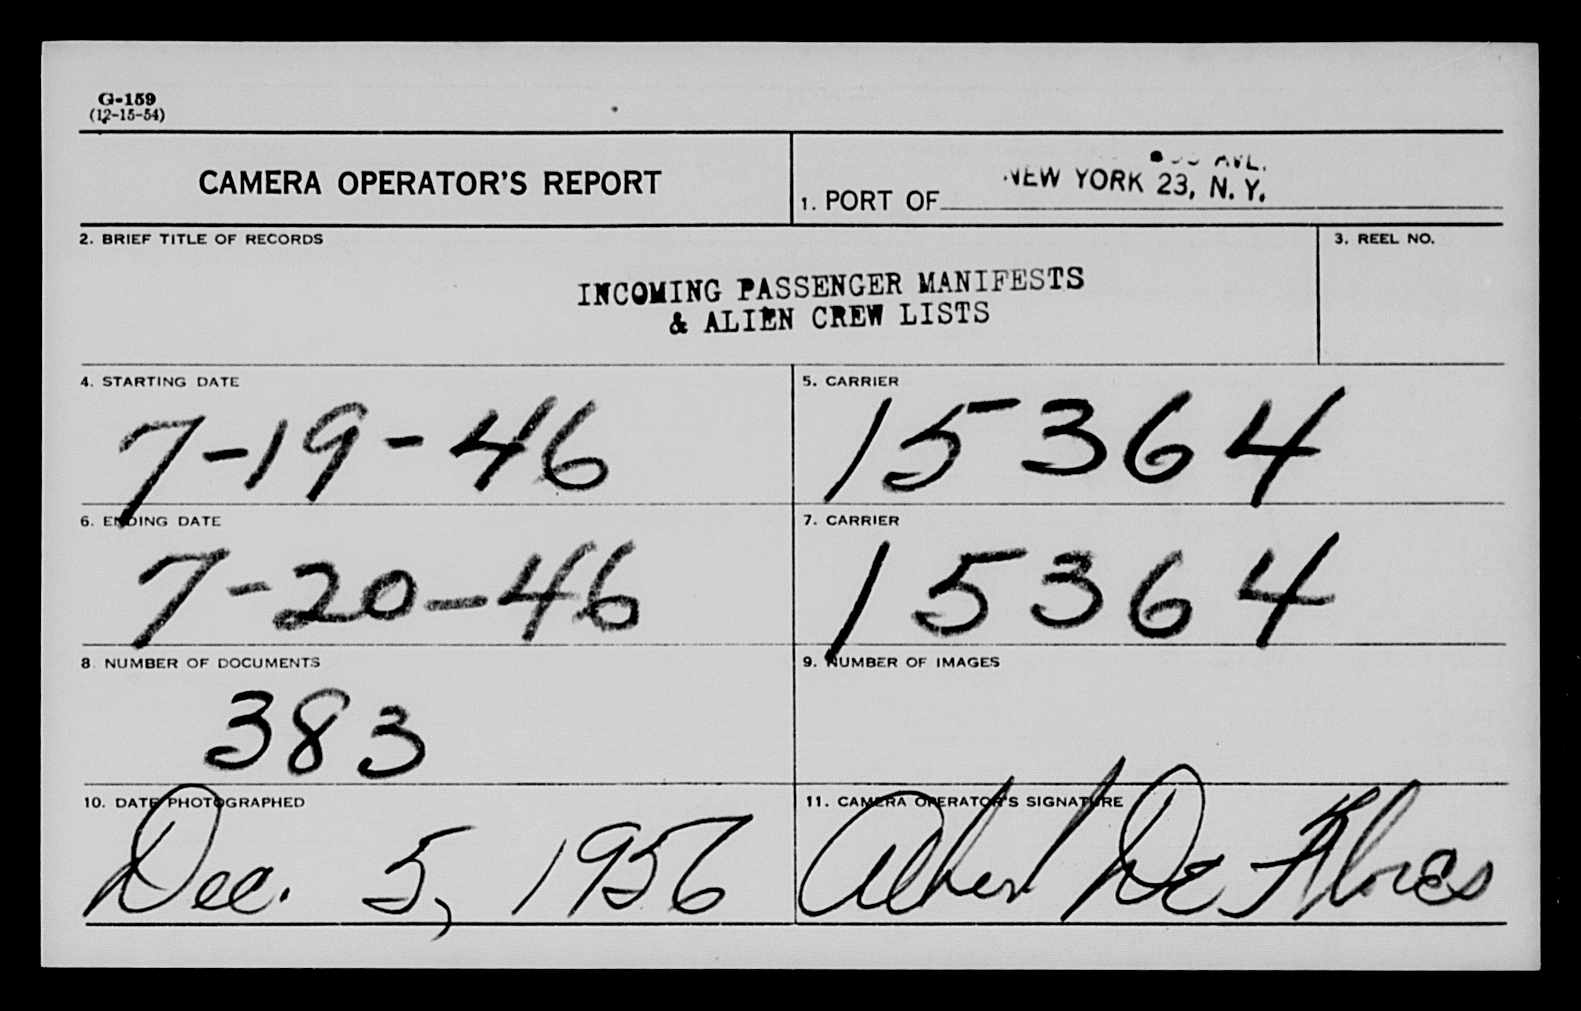 G-159
(12-15-54)
CAMERA OPERATOR'S REPORT
AVE.
1. PORT OF NEW YORK 23, N.Y.
2. BRIEF TITLE OF RECORDS
3. REEL NO.
INCOMING PASSENGER MANIFESTS
& ALIEN CREW LISTS
4. STARTING DATE
7-19-46
5. CARRIER
15364
6. ENDING DATE
7-20-46
7. CARRIER
15364
8. NUMBER OF DOCUMENTS
383
9. NUMBER OF IMAGES
10. DATE PHOTOGRAPHED
Dec. 5, 1956
11. CAMERA OPERATOR'S SIGNATURE
Albert De Flores